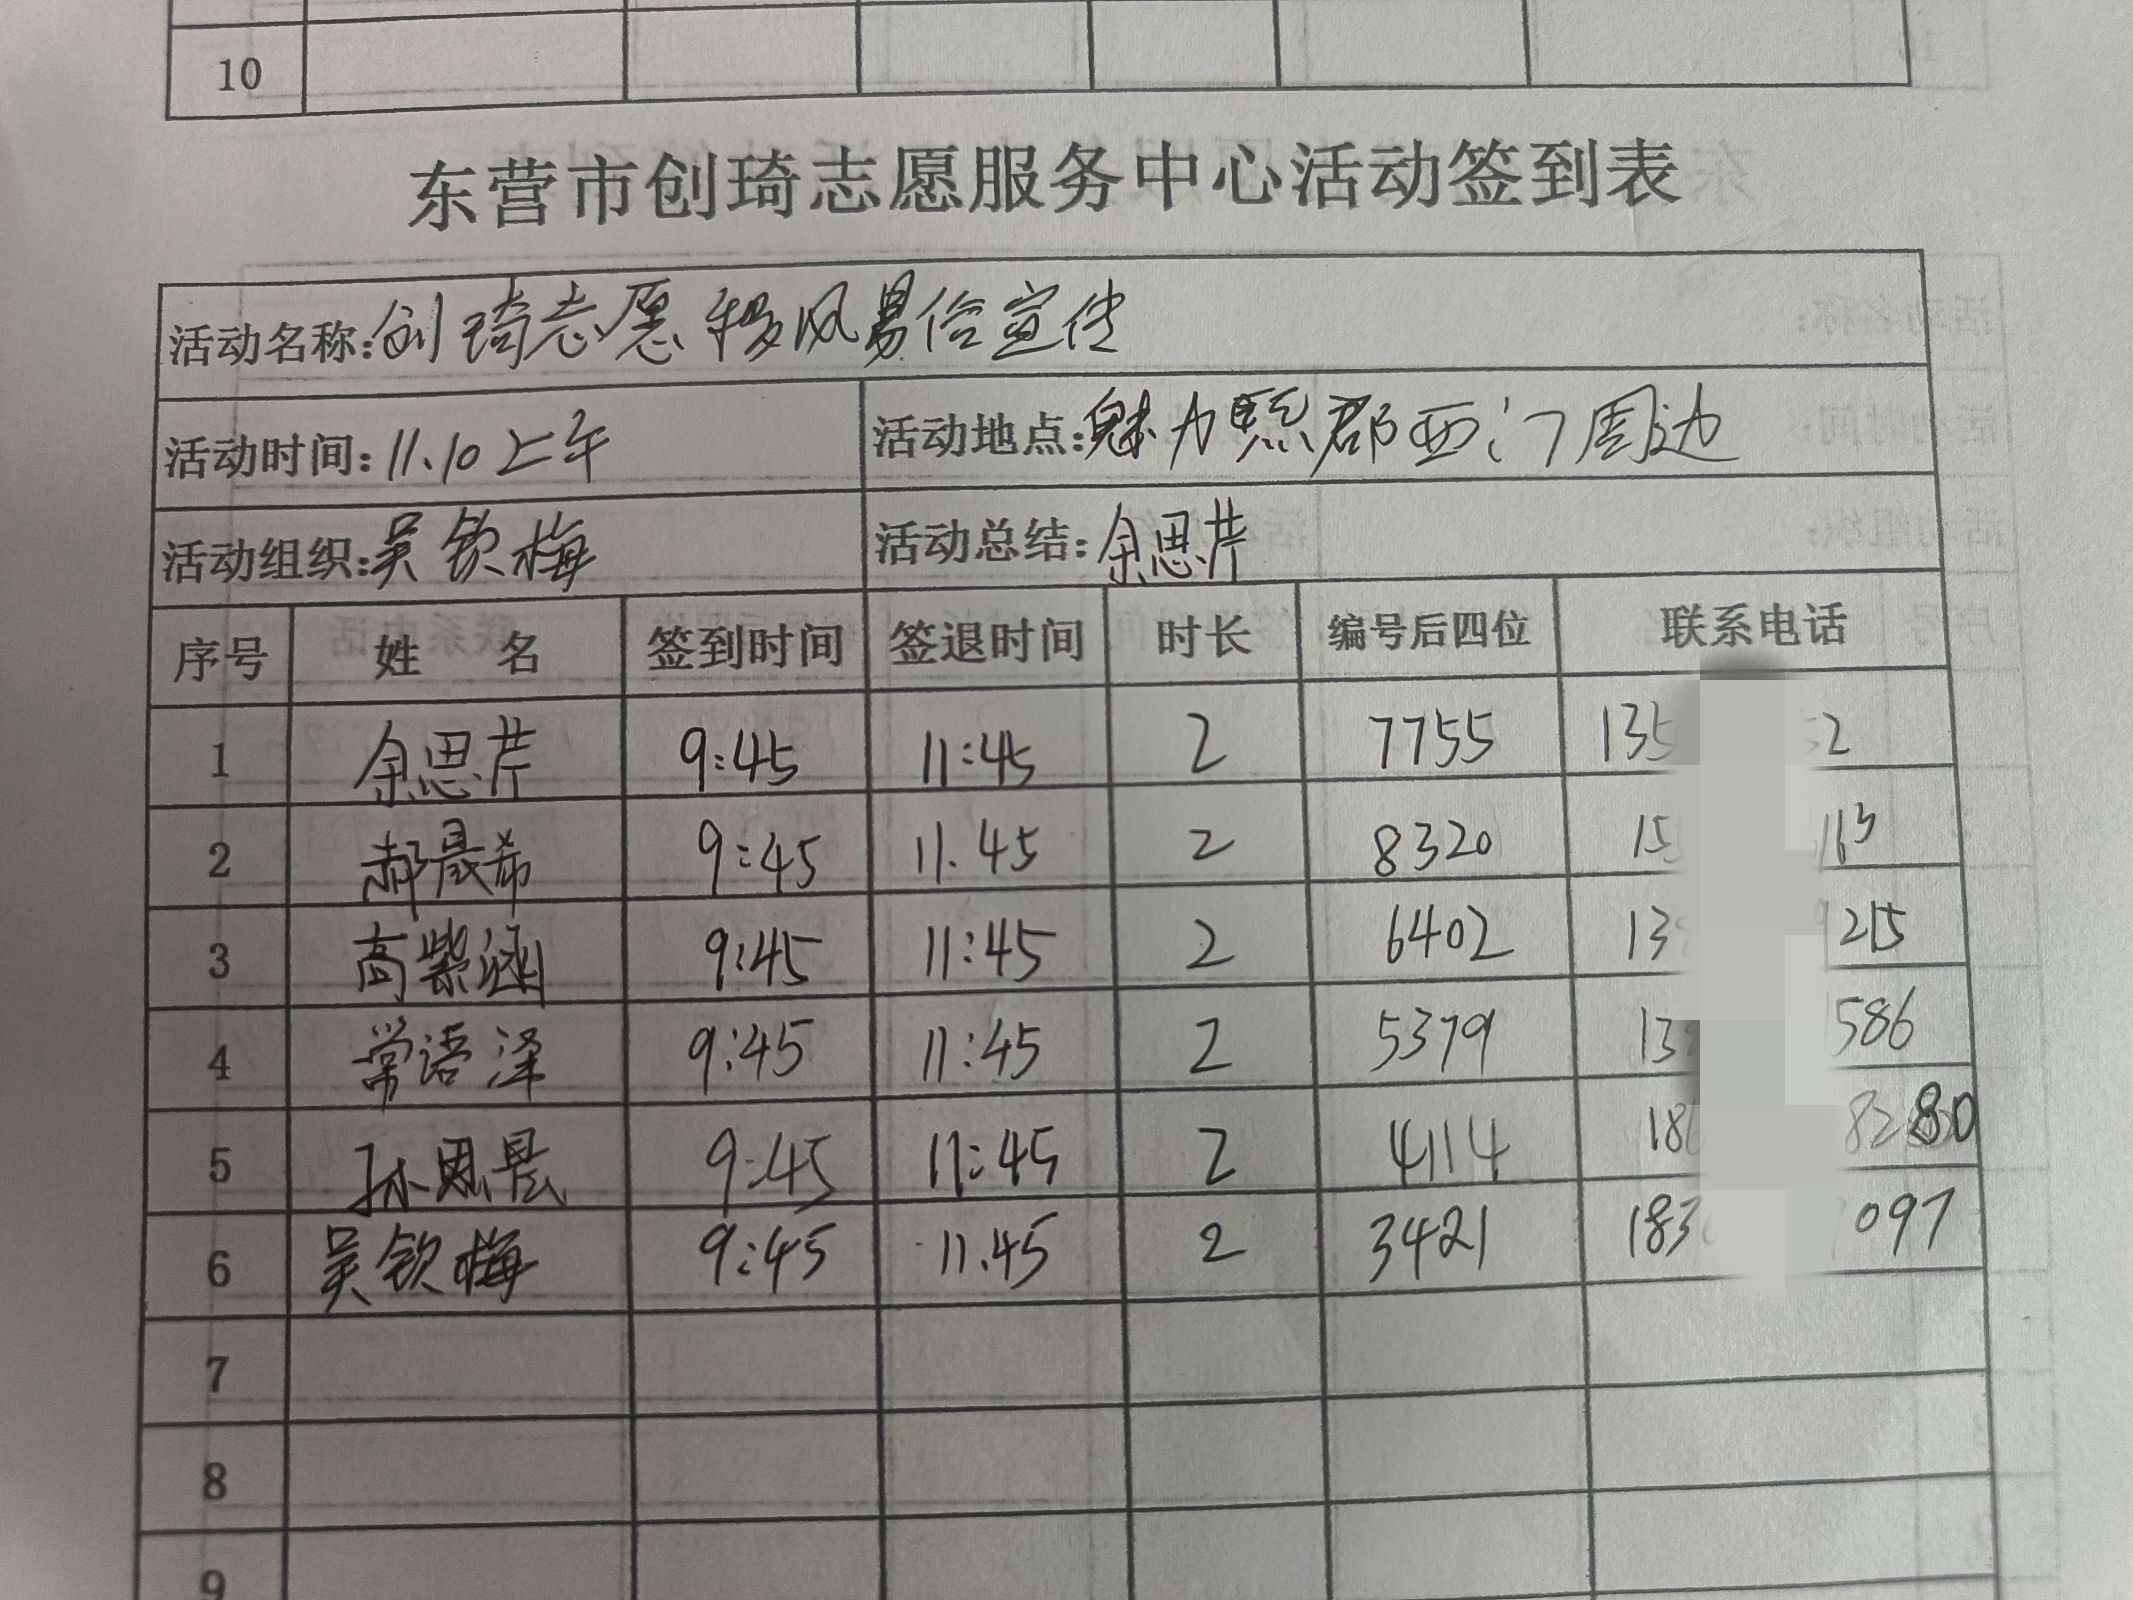 10
东营市创琦志愿服务中心活动签到表
活动名称:创琦志愿移风易俗宣传
活动时间:11.10上午 活动地点:魅力熙郡西门周边
活动组织:吴钦梅 活动总结:余思芹
序号 姓 名 签到时间 签退时间 时长 编号后四位 联系电话
1 余思芹 9:45 11:45 2 7755 135 52
2 郝晨希 9:45 11.45 2 8320 15 113
3 高紫涵 9:45 11:45 2 6402 13 9215
4 常语泽 9:45 11:45 2 5379 13 586
5 孙思晨 9:45 11:45 2 4114 18 8280
6 吴钦梅 9:45 11.45 2 3421 183 097
7
8
9